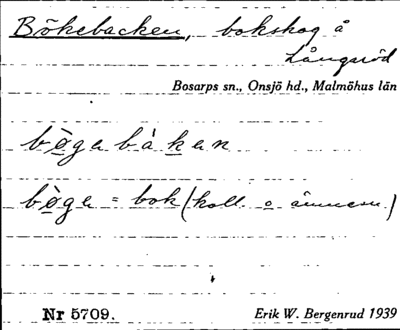 Bökebacken, bokskog å
Långsröd
Bosarps sn., Onsjö hd., Malmöhus län
bø̀gabàkan
bø̀ga = bok (koll. o ämnesn.)
Nr 5709.
Erik W. Bergenrud 1939